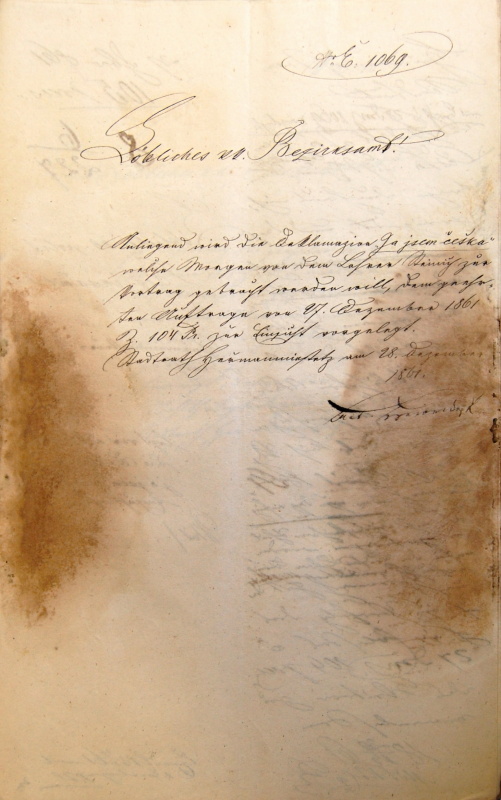 No E. 1069.
Löbliches kk. Bezirksamt!
Anliegend wird die Deklamazion „Ja jsem češka“
welche Morgen von dem Lehrer zur
Vortrag gebracht werden will, dem geehr-
ten Auftrage von 27. Dezember 1861
Z. 104 Pr. zur Einsicht vorgelegt.
Stadtrath Heřmanměstetz am 28. Dezember
1861.